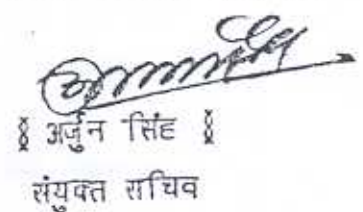 § अर्जुन सिंह §
संयुक्त सचिव